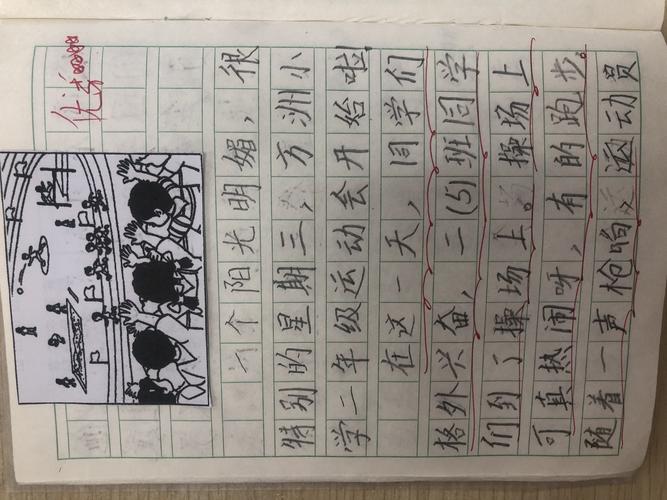 一个阳光明媚，很
特别的星期三，方洲小
学二年级运动会开始啦
在这一天，同学们
格外兴奋，二(5)班同学
们到了操场上。操场上
可真热闹呀，有的跑步。
随着一声枪响，运动员